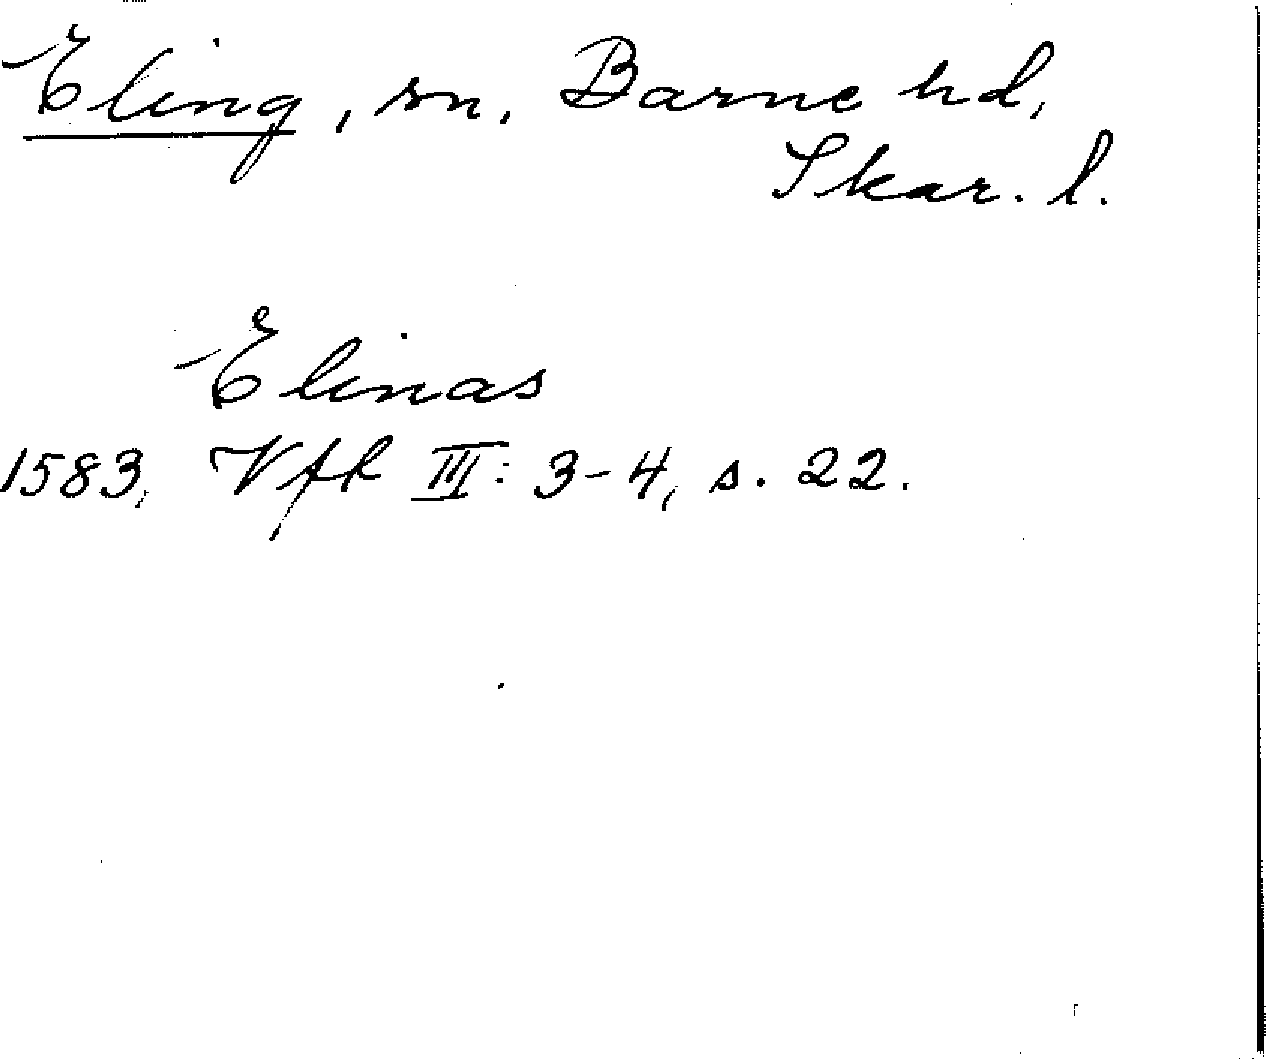 Eling, sn, Barne hd,
Skar. l.
Elinas
1583, Vfh III: 3-4, s. 22.